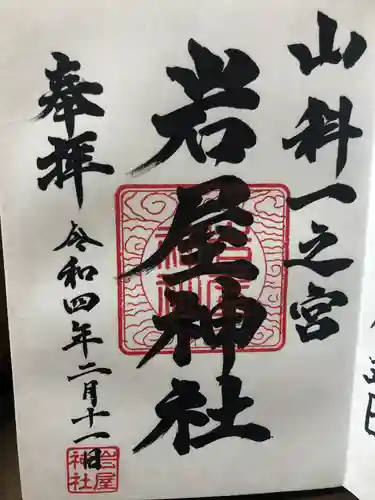 山科一之宮
岩屋神社
奉拝
令和四年二月十一日
岩屋
神社